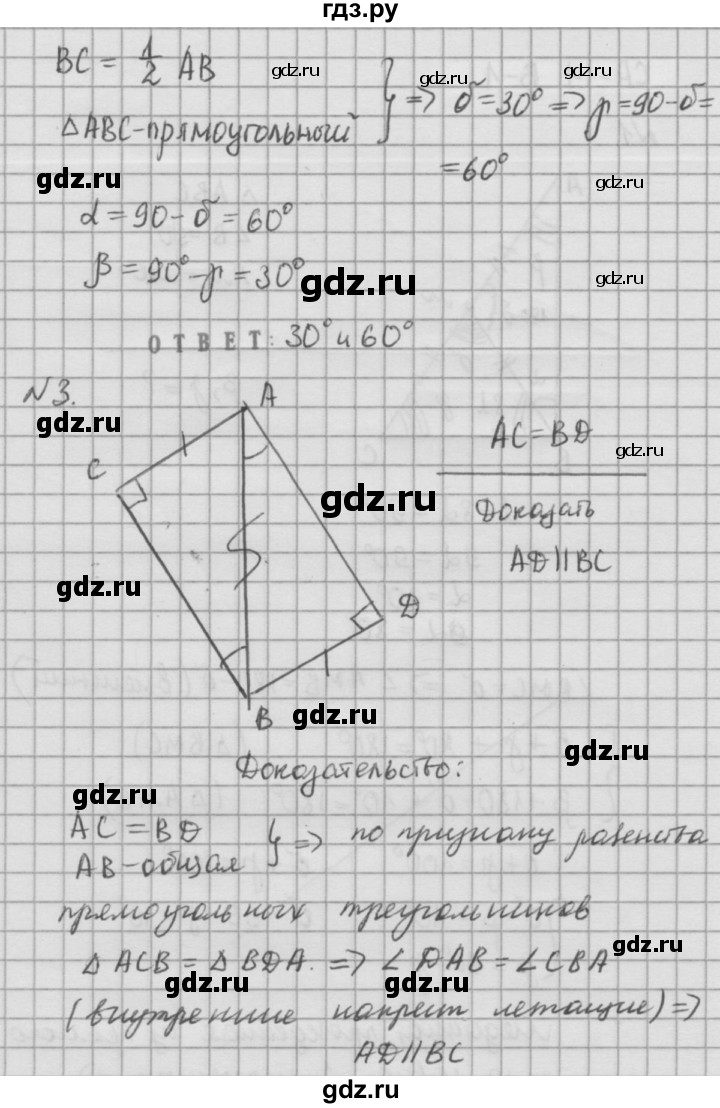 гдз.ру
BC = 1/2 AB
gdz.ru
gdz.ru
gdz.ru
} => δ = 30° => γ = 90 - δ =
△ABC - прямоугольный
= 60°
gdz.ru
gdz.ru
α = 90 - δ = 60°
β = 90° - γ = 30°
gdz.ru
gdz.ru
ОТВЕТ: 30° и 60°
gdz.ru
N3.
gdz.ru
A
AC = BD
gdz.ru
C
gdz.ru
Доказать
AD || BC
gdz.ru
gdz.ru
D
gdz.ru
B
gdz.ru
Доказательство:
gdz.ru
AC = BD
AB - общая
} => по признаку равенства
прямоугольных треугольников
gdz.ru
△ ACB = △ BDA. => ∠ DAB = ∠ CBA
gdz.ru
gdz.ru
(внутренние накрест лежащие) =>
AD || BC
gdz.ru